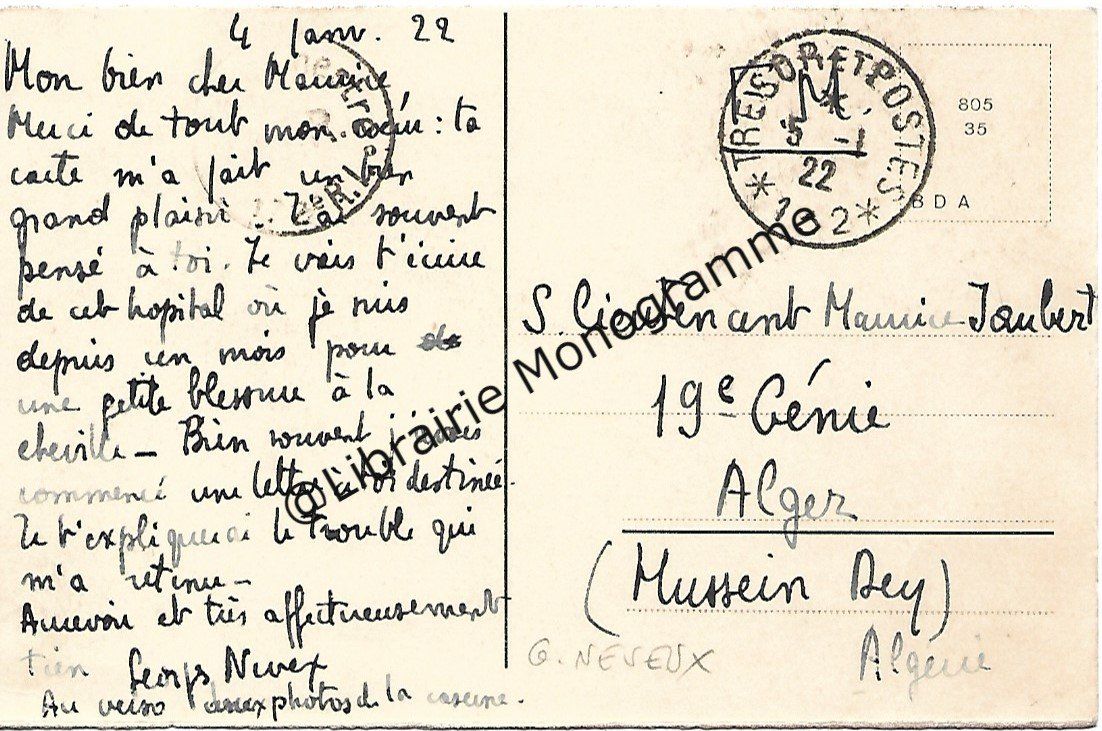 4 Janv. 22
Mon bien cher Maurice,
Merci de tout mon cœur : ta
carte m'a fait un bien
grand plaisir. J'ai souvent
pensé à toi. Je vais t'écrire
de cet hopital où je suis
depuis un mois pour
une petite blessure à la
cheville – Bien souvent j'avais
commencé une lettre à toi destinée.
Je t'expliquerai le trouble qui
m'a retenu –
Aurevoir et très affectueusement
tien Georges Neveux
Au verso deux photos de la caserne.
TRESOR ET POSTES
5 -1
22
805
35
BDA
S. Lieutenant Maurice Jaubert
19e Génie
Alger
(Hussein Dey)
Algérie
G. NEVEUX
@Librairie Monogramme